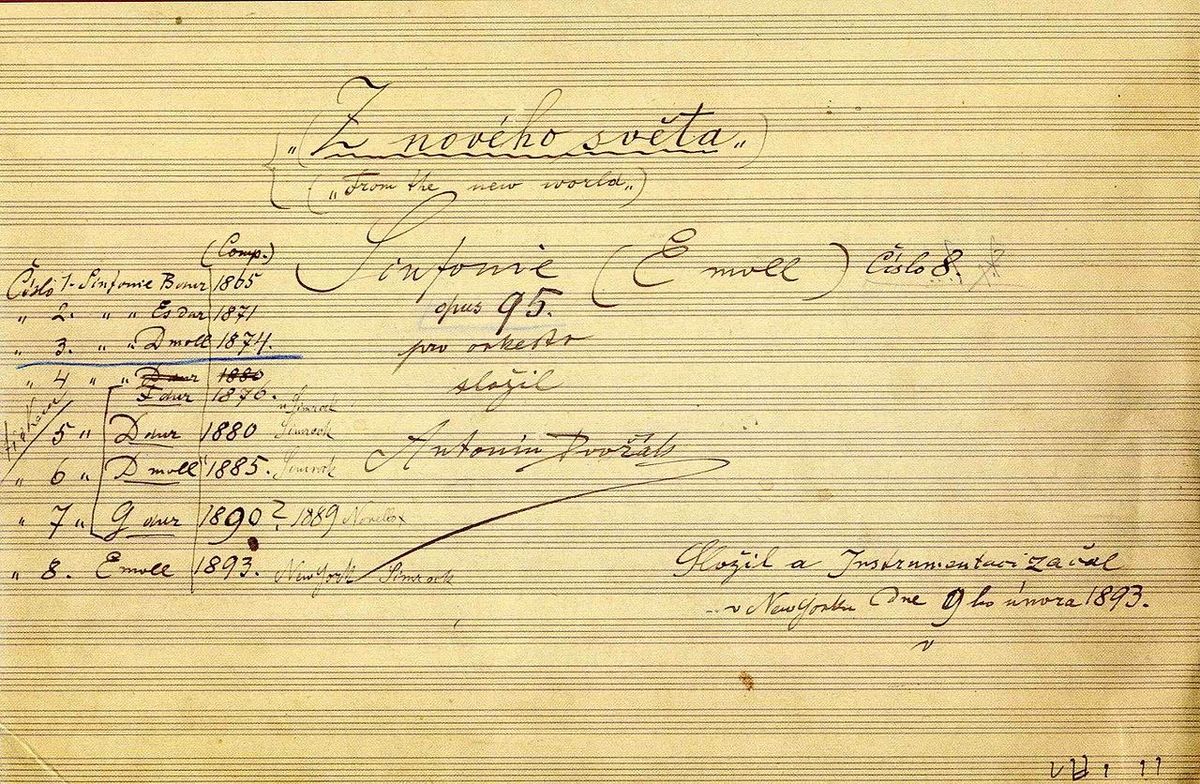 „Z nového světa„
(„From the new world„)
Sinfonie (E moll) Číslo 8.
opus 95.
pro orkestr
složil
Antonín Dvořák
(Comp.)
Číslo 1- Sinfonie B dur 1865
„ 2. „ „ Es dur 1871
„ 3. „ „ D moll 1874.
„ 4 „ „ D dur 1880
F dur 1876. Simrock
5 „ D dur 1880 Simrock
„ 6 „ D moll 1885. Simrock
„ 7 „ G dur 1890? 1889 Novello
„ 8. E moll 1893. New York Simrock
Složil a Instrumentaci začal
v New Yorku Dne 9ho února 1893.